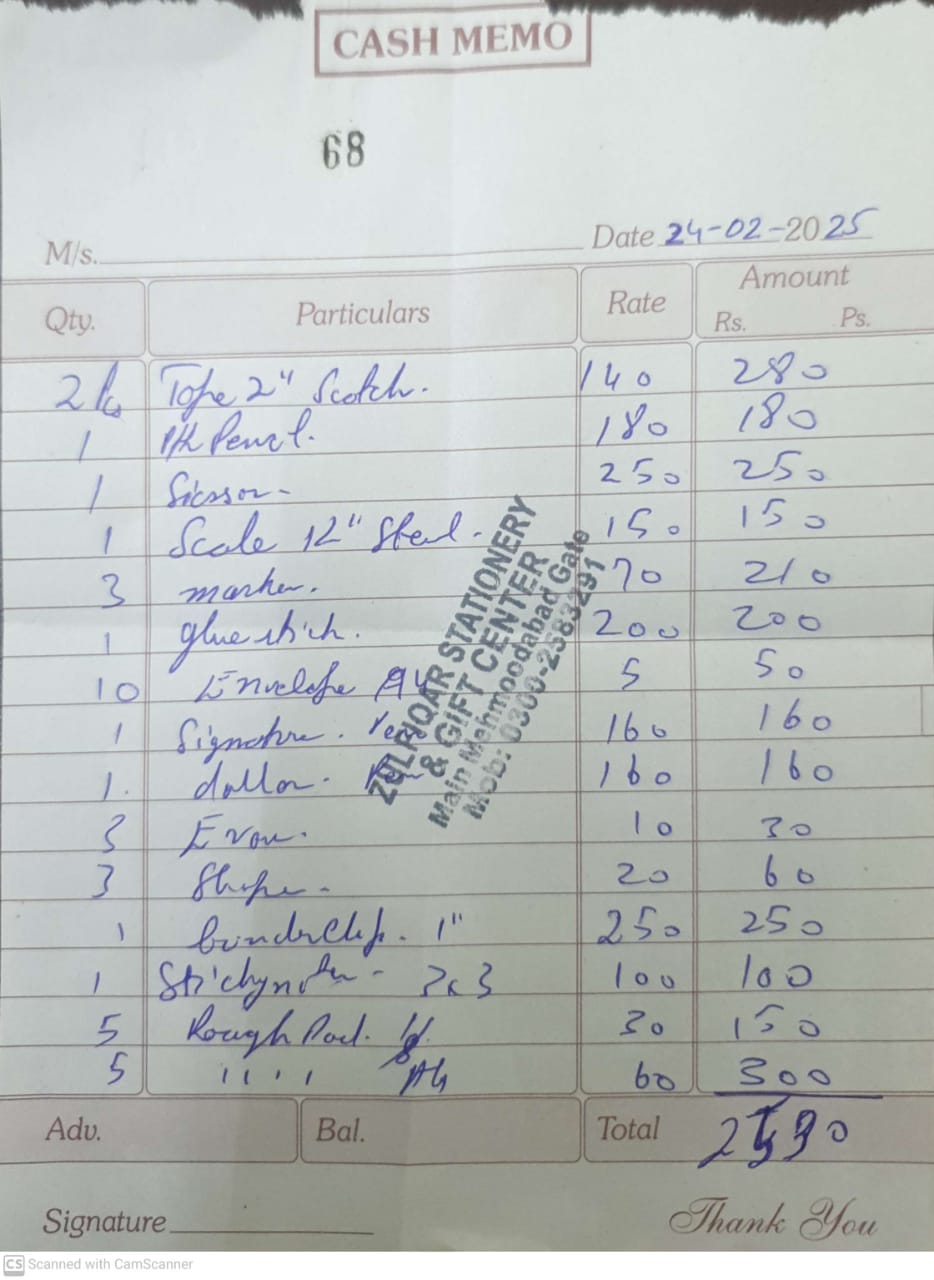 CASH MEMO
68
M/s. Date 24-02-2025
Qty. Particulars Rate Amount
Rs. Ps.
2 Tape 2" Scotch. 140 280
1 Pencil. 180 180
1 Sicssor- 250 250
1 Scale 12" Steel. 150 150
3 marker. 70 210
1 glue stick. 200 200
10 Envelope A4 5 50
1 Signature. Pen 160 160
1. dollar. Pen 160 160
3 10 30
3 20 60
1 binder clip. 1" 250 250
1 Stickynote - 3x3 100 100
5 Rough Pad. 30 150
5 " " A4 60 300
Adv. Bal. Total
Signature Thank You
ZULFIQAR STATIONERY
& GIFT CENTER
Main Mehmoodabad Gate
Mob: 0300-2583291
CS Scanned with CamScanner